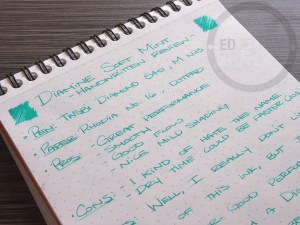 ED
DIAMINE SOFT MINT
- HANDWRITTEN REVIEW -
PEN: TWSBI DIAMOND 540, M NIB
• PAPER: RHODIA NO. 16, DOTPAD
• PROS: - GREAT PERFORMANCE
- SMOOTH FLOW
- NICE MILD SHADING
• CONS: - I KIND OF HATE THE NAME
- DRY TIME COULD BE FASTER
WELL, I REALLY DON'T
OF THIS INK, BUT
OF GOOD
A